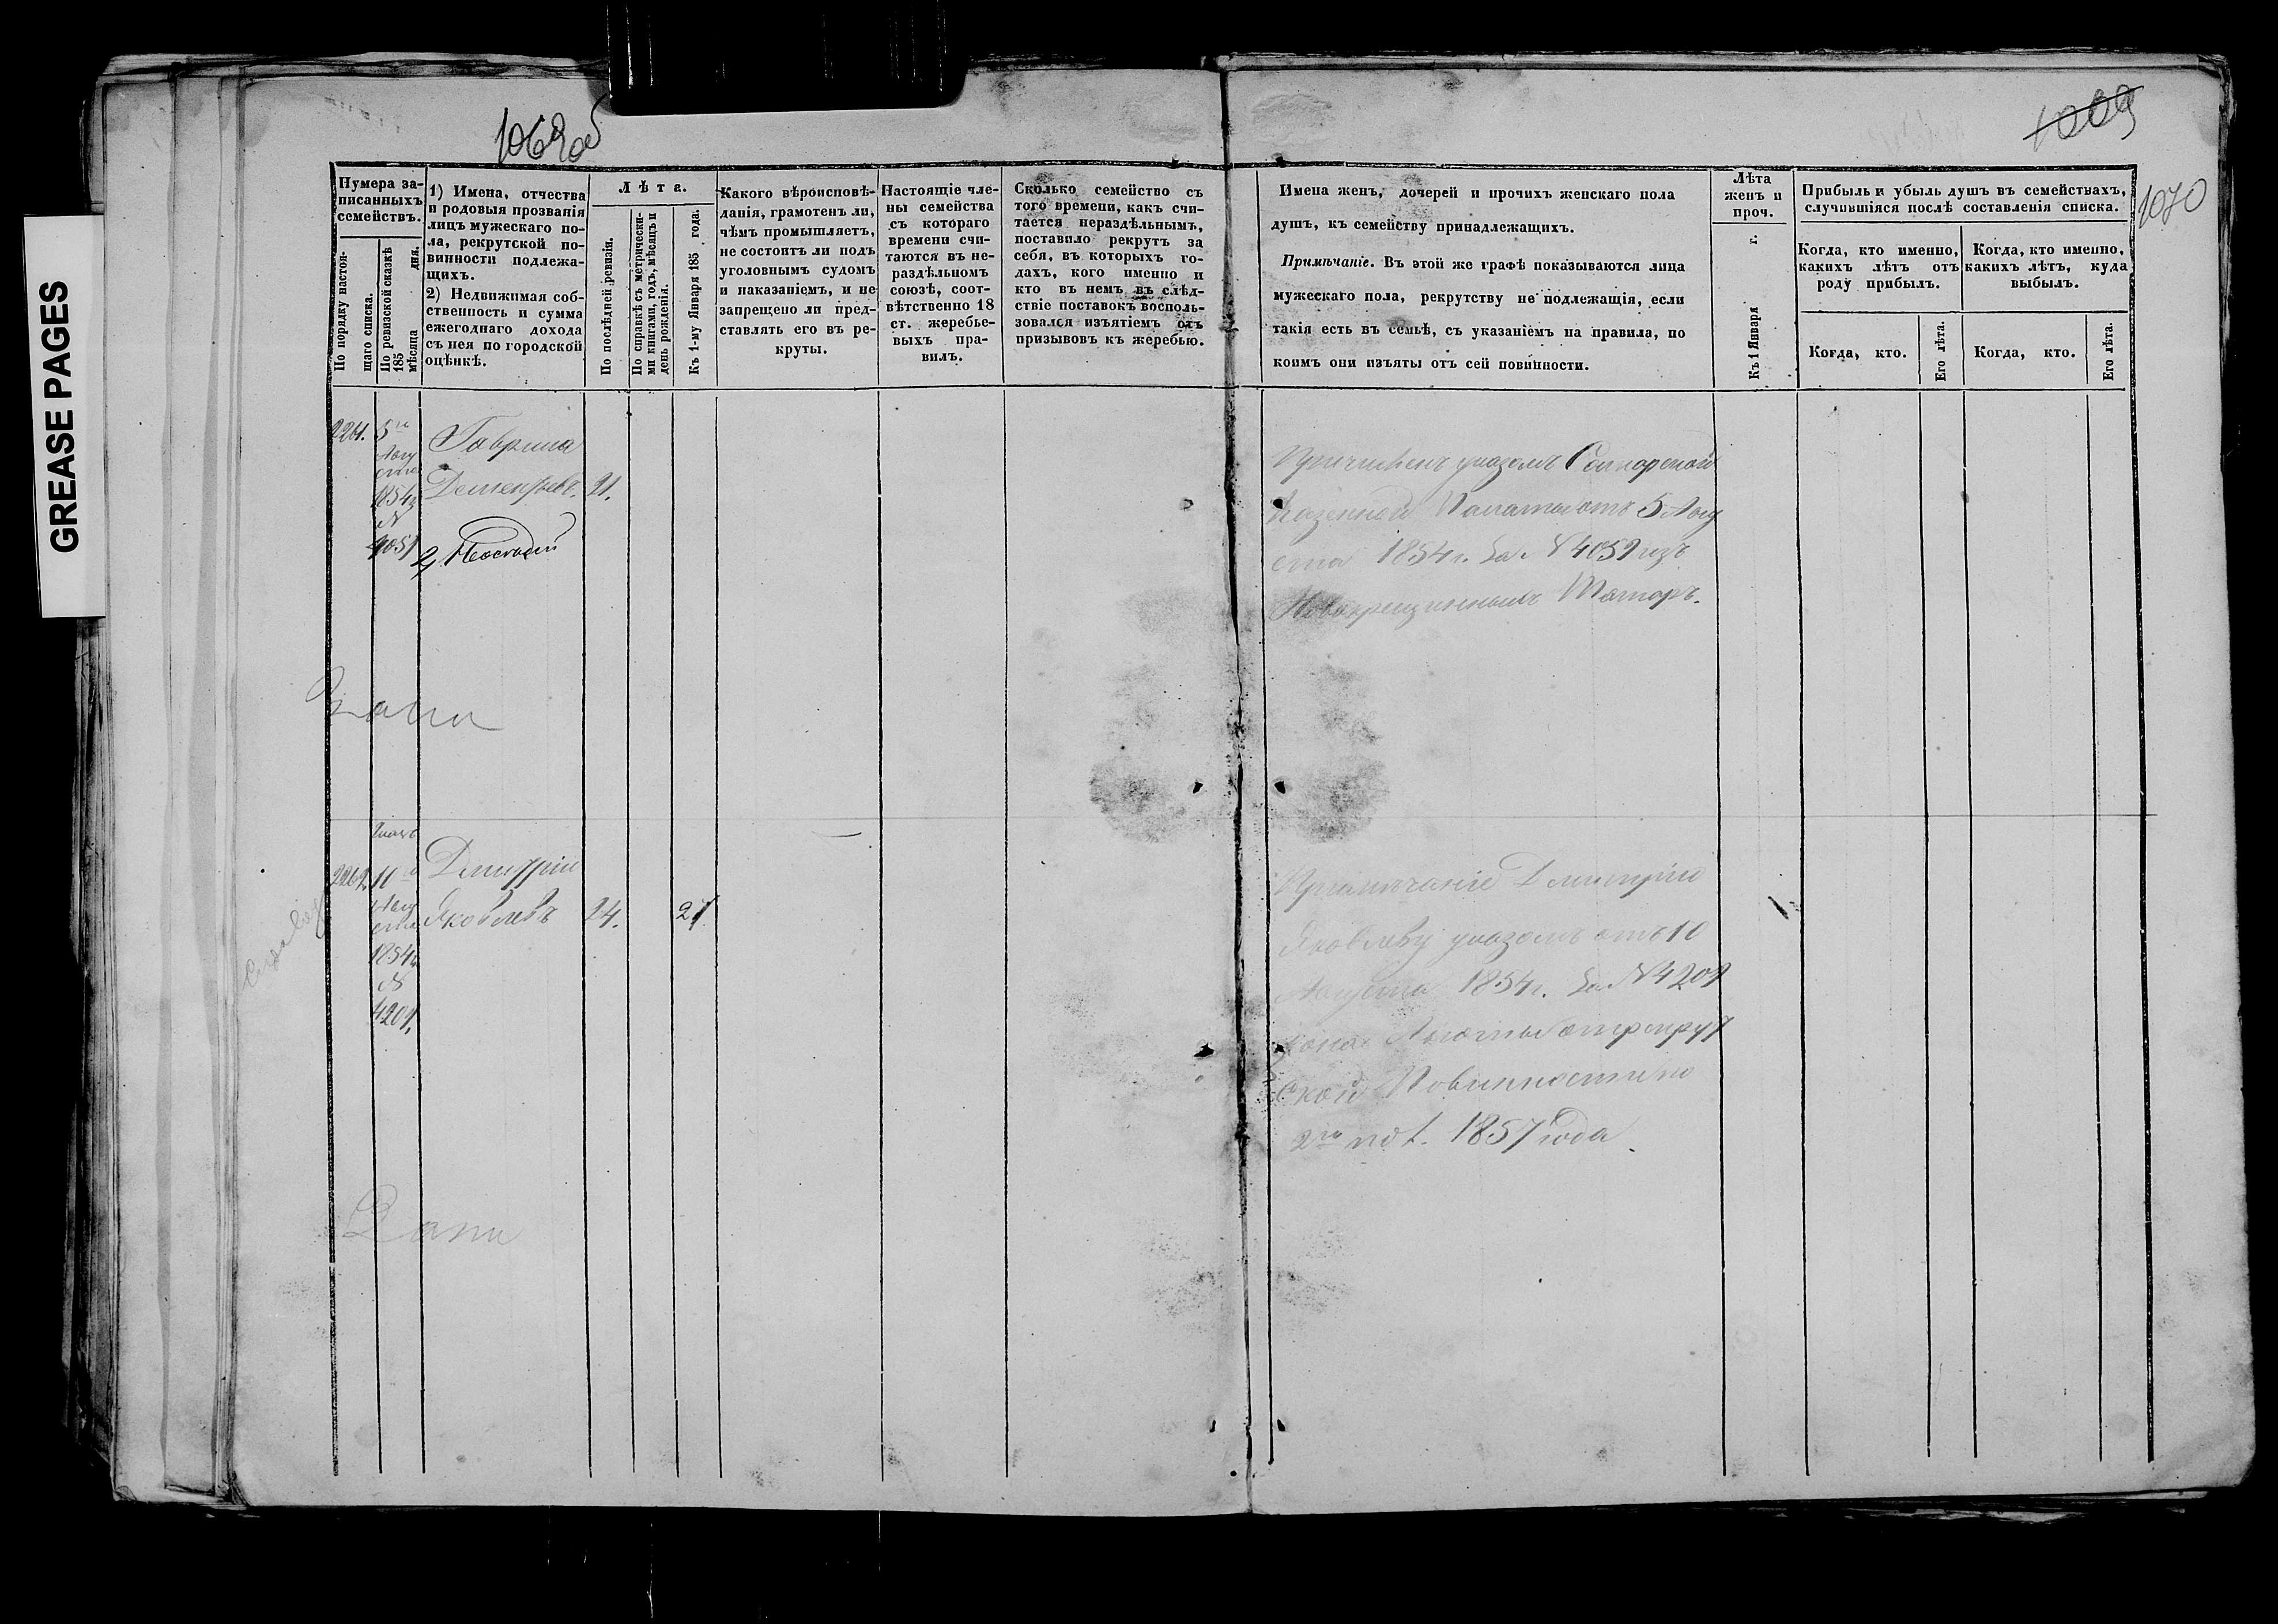 GREASE PAGES
1069об
1009
1070
Нумера за-
писанныхъ
семействъ.
По порядку настоя-
щаго списка.
По ревизской сказкѣ
185 мѣсяца дня.
1) Имена, отчества
и родовыя прозванія
лицъ мужескаго по-
ла, рекрутской по-
винности подлежа-
щихъ.
2) Недвижимая соб-
ственность и сумма
ежегоднаго дохода
съ нея по городской
оцѣнкѣ.
Лѣта.
По послѣдней ревизіи.
По справкѣ съ метрически-
ми книгами, годъ, мѣсяцъ и
день рожденія.
Къ 1-му Января 185 года.
Какого вѣроисповѣ-
данія, грамотенъ ли,
чѣмъ промышляетъ,
не состоитъ ли подъ
уголовнымъ судомъ
и наказаніемъ, и не
запрещено ли пред-
ставлять его въ ре-
круты.
Настоящіе чле-
ны семейства
съ котораго
времени счи-
таются въ не-
раздѣльномъ
союзѣ, соот-
вѣтственно 18
ст. жеребье-
выхъ пра-
вилъ.
Сколько семейство съ
того времени, какъ счи-
тается нераздѣльнымъ,
поставило рекрутъ за
себя, въ которыхъ го-
дахъ, кого именно и
кто въ немъ въ слѣд-
ствіе поставокъ восполь-
зовался изъятіемъ отъ
призывовъ къ жеребью.
Имена женъ, дочерей и прочихъ женскаго пола
душъ, къ семейству принадлежащихъ.
Примѣчаніе. Въ этой же графѣ показываются лица
мужескаго пола, рекрутству не подлежащія, если
такія есть въ семьѣ, съ указаніемъ на правила, по
коимъ они изъяты отъ сей повинности.
Лѣта
женъ и
проч.
Къ 1 Января г.
Прибыль и убыль душъ въ семействахъ,
случившіяся послѣ составленія списка.
Когда, кто именно,
какихъ лѣтъ отъ
роду прибылъ.
Когда, кто именно,
какихъ лѣтъ, куда
выбылъ.
Когда, кто.
Его лѣта.
Когда, кто.
Его лѣта.
2261.
5го
Авгу
ста
1854г
№
4059
Гаврила
Дементьевъ. 21.
Причисленъ указомъ Самарской
Казенной Палаты отъ 5 Авгу
ста 1854г. за № 4059 изъ
Новокрещенныхъ Татаръ.
2262.
Указъ
10го
Авгу
ста
1854г
№
4209.
Дмитрій
Яковлевъ 24. 27
Примѣчаніе Дмитрію
Яковлеву указомъ отъ 10
Августа 1854г. за № 4209
льготы отъ рекрут
ской Повинности по
1857 года.